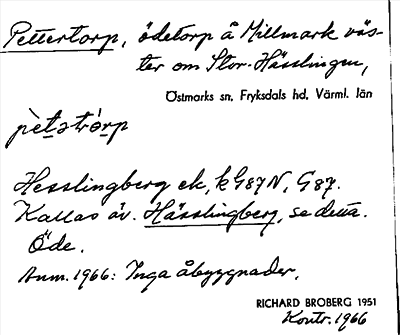 Pettertorp, ödetorp å Millmark väs-
ter om Stor-Hässlingen,
Östmarks sn, Fryksdals hd, Värml. län
pètətrórp
Hesslingberg ek, k G87N, G87.
Kallas äv. Hässlingberg, se detta.
Öde.
Anm. 1966: Inga åbyggnader.
RICHARD BROBERG 1951
Kontr. 1966